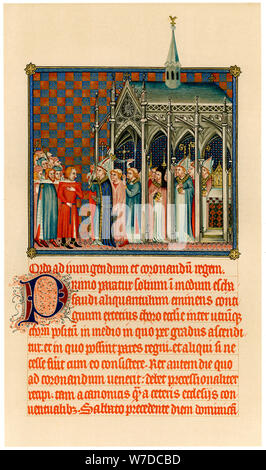 Ordo ad inungendum et coronandum regem.
Primo paratur solium in medium eccle
sie aliquantulum eminens contiguum exterius
choro ecclesie inter utrumque
corum positum in medio in quo per gradus ascendi
tur. et in quo possint pares regni. et aliqui si ne
cesse fuerit cum eo consistere. Rex autem die quo
ad coronandum venerit. debet processionaliter
recipi. tam a canonicis quam a ceteris ecclesiis con
ventualibus. Sabbato precedente diem dominica
alamy
W7DCBD